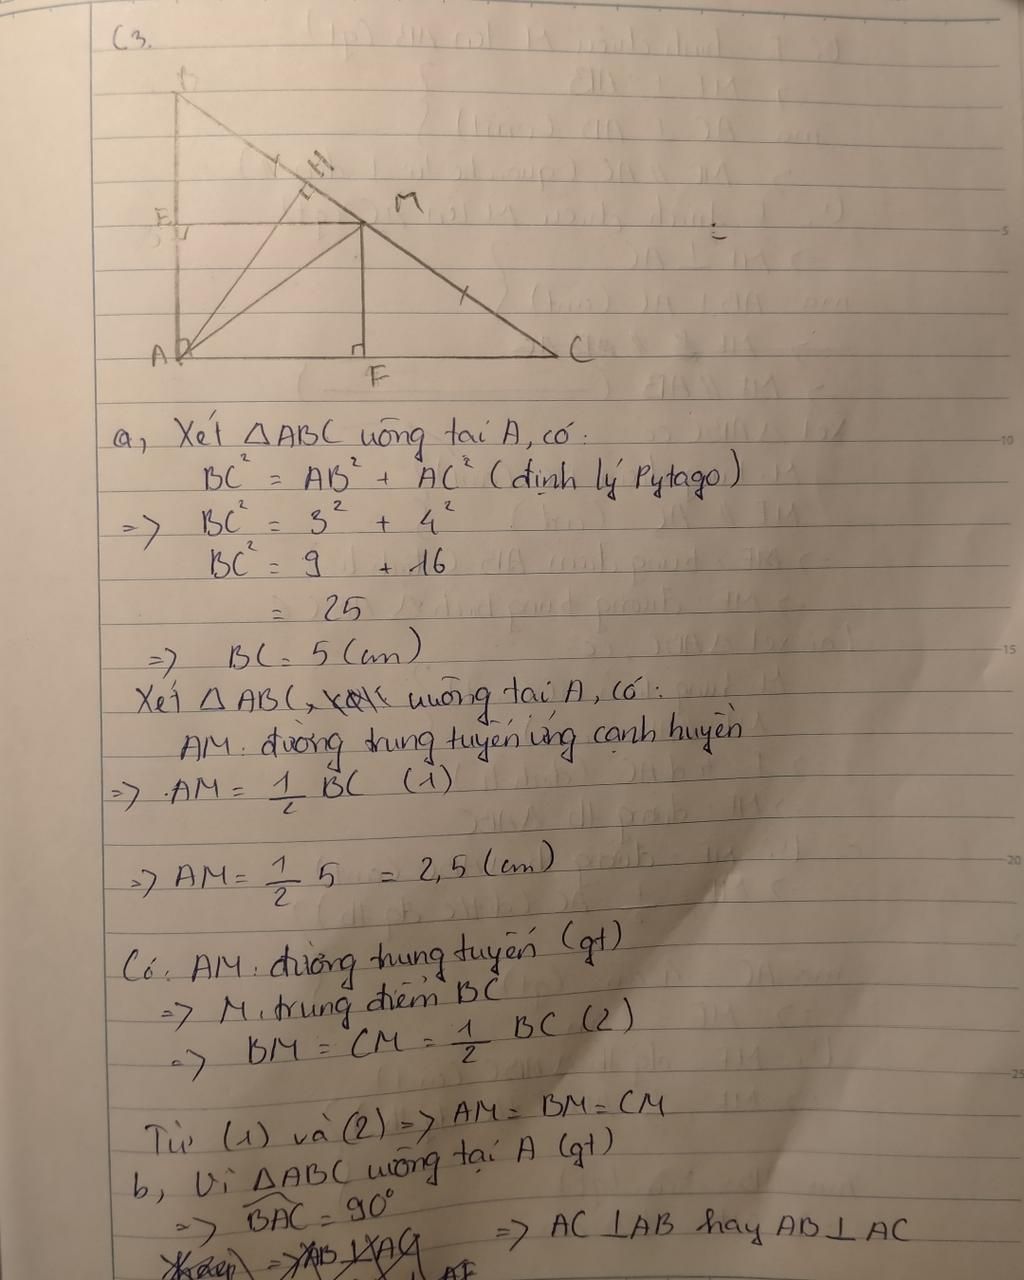 C3.
B
H
M
E
A
F
C
a, Xét △ABC uông tại A, có:
BC² = AB² + AC² (định lý Pytago)
=> BC² = 3² + 4²
BC² = 9 + 16
= 25
=> BC = 5 (cm)
Xét △ABC, uuông tại A, có:
AM: đường trung tuyến ứng cạnh huyền
=> AM = 1/2 BC (1)
=> AM = 1/2 5 = 2,5 (cm)
Có: AM: đường trung tuyến (gt)
=> M: trung điểm BC
=> BM = CM = 1/2 BC (2)
Từ (1) và (2) => AM = BM = CM
b, Vì △ABC uuông tại A (gt)
=> BAC = 90°
=> AC ⊥ AB hay AB ⊥ AC
=> AB ⊥ AC